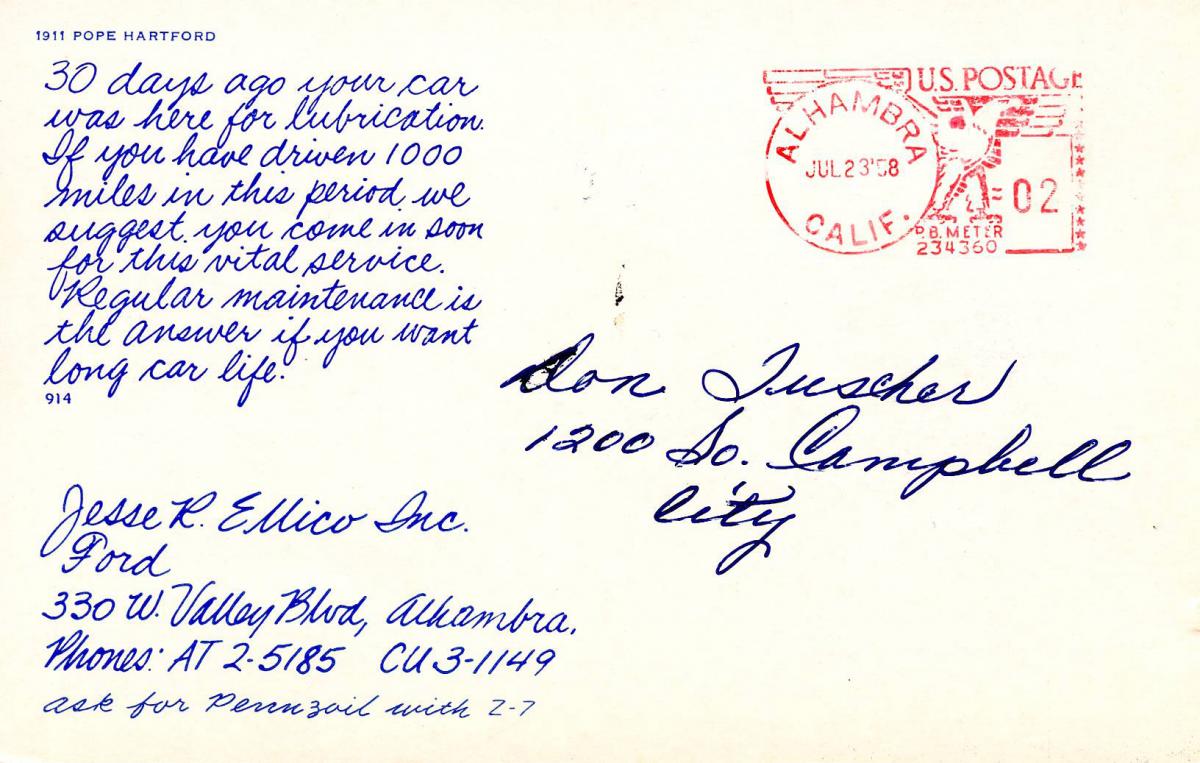 1911 POPE HARTFORD
30 days ago your car
was here for lubrication.
If you have driven 1000
miles in this period, we
suggest you come in soon
for this vital service.
Regular maintenance is
the answer if you want
long car life.
914
Jesse R. Ellico Inc.
Ford
330 W. Valley Blvd, Alhambra.
Phones: AT 2-5185 CU 3-1149
ask for Pennzoil with Z-7
U.S. POSTAGE
ALHAMBRA
JUL 23 '58
CALIF.
02
P.B. METER
234360
Don Tuscher
1200 So. Campbell
City